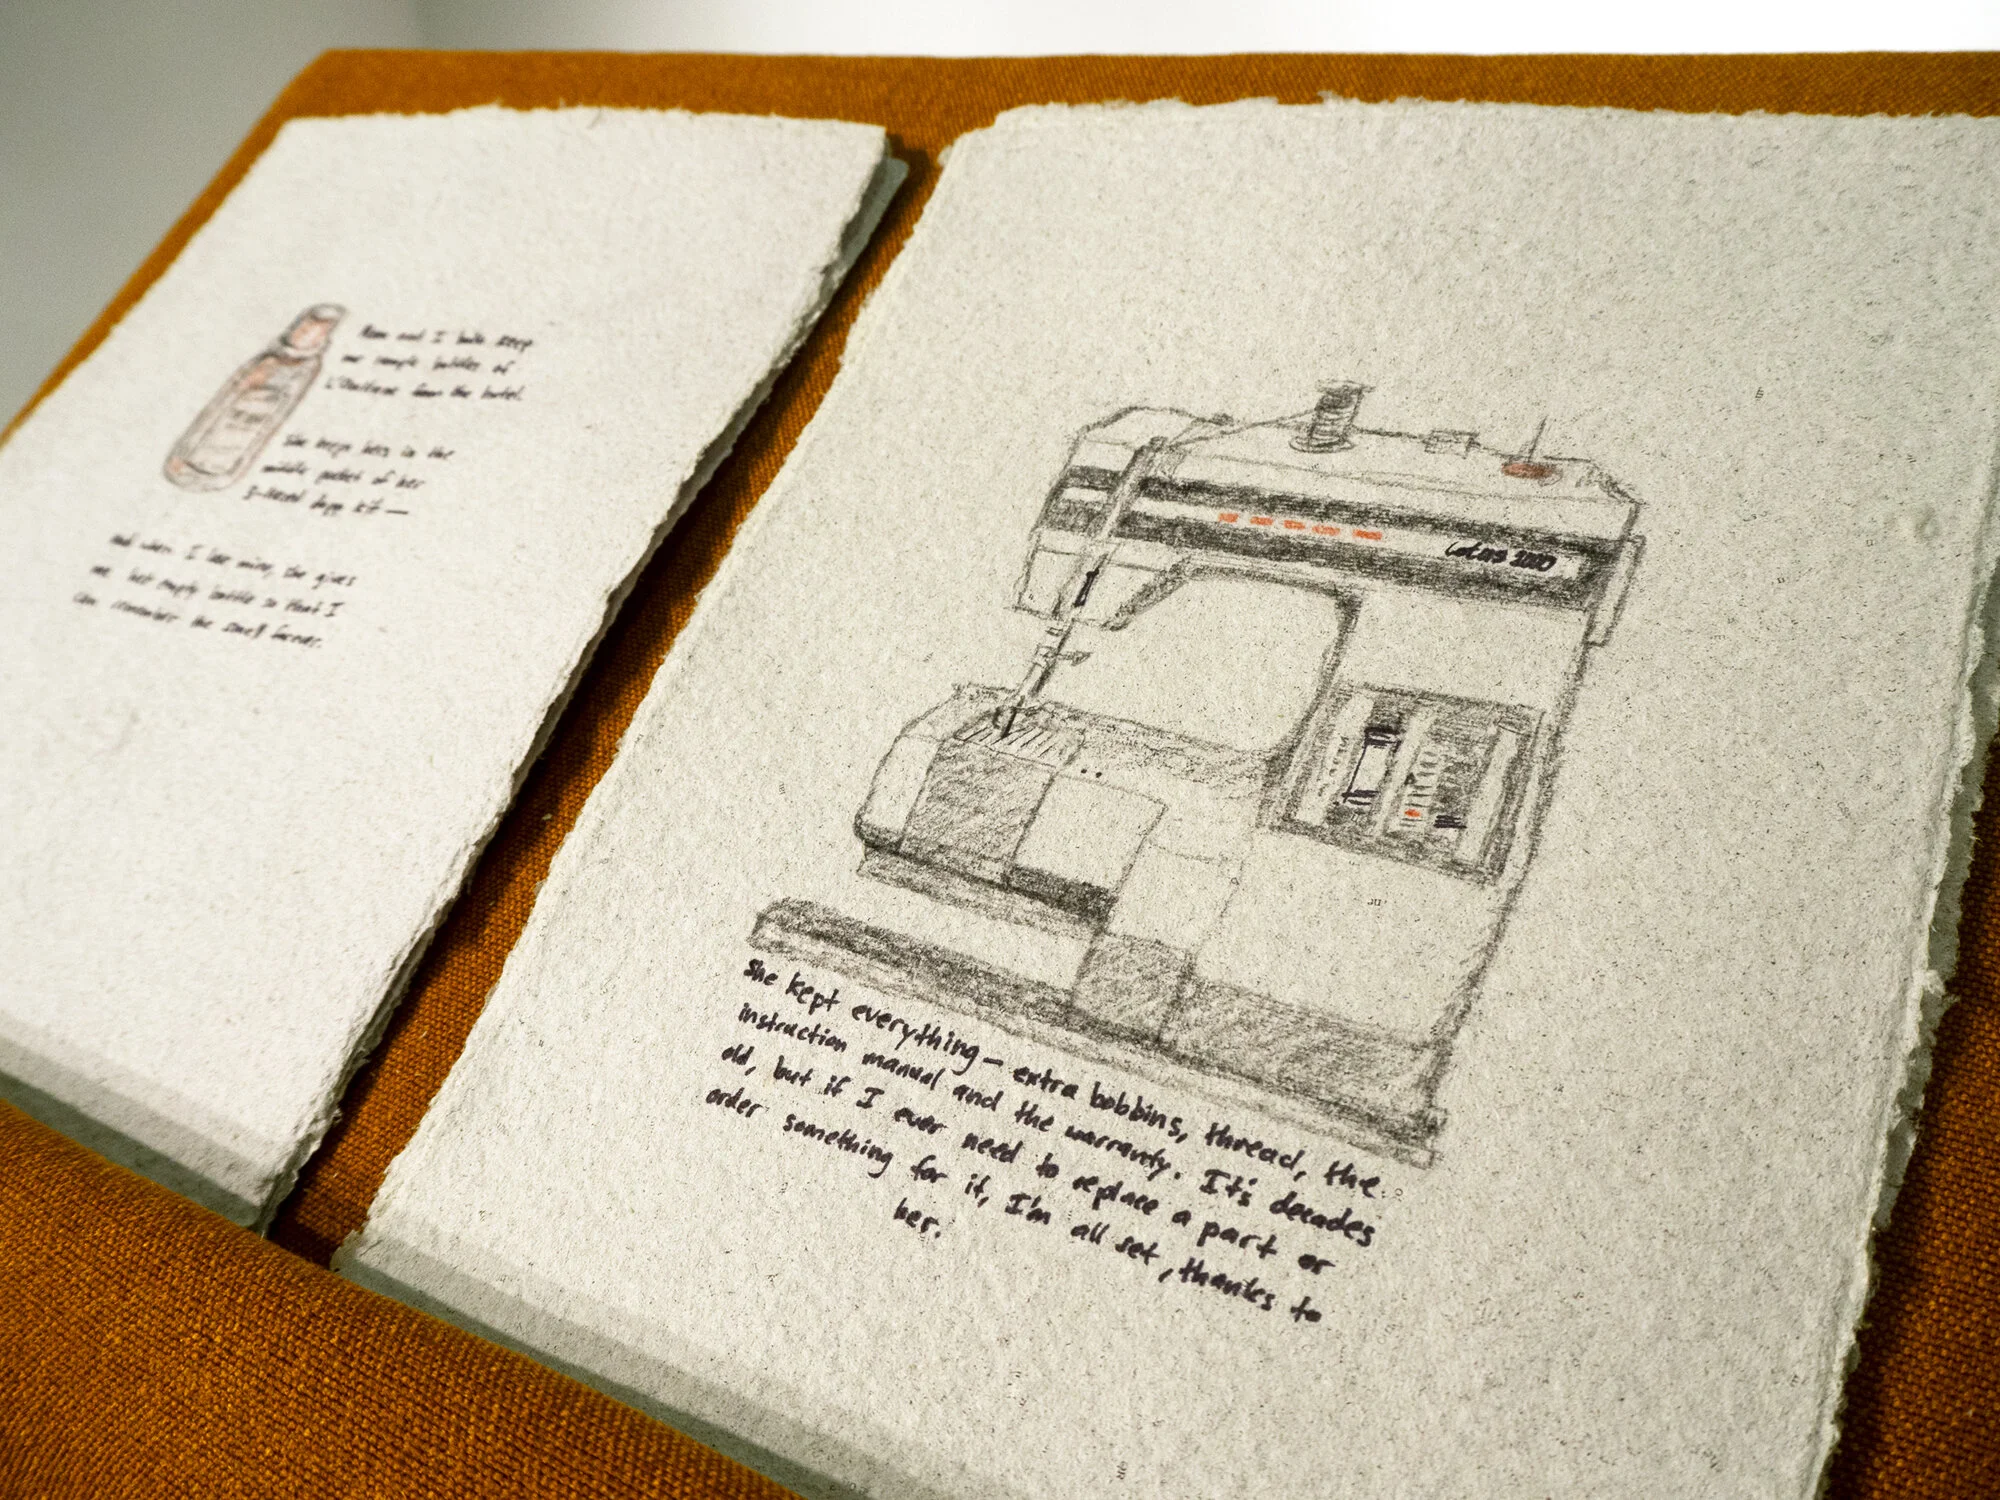 and I both keep
our sample bottles of
L'Occitane from the hotel.
She keeps hers in the
middle pocket of her
dopp kit —
And when I lose mine, she gives
me her empty bottle so that I
can remember the smell forever.
She kept everything — extra bobbins, thread, the
instruction manual and the warranty. It's decades
old, but if I ever need to replace a part or
order something for it, I'm all set, thanks to
her.